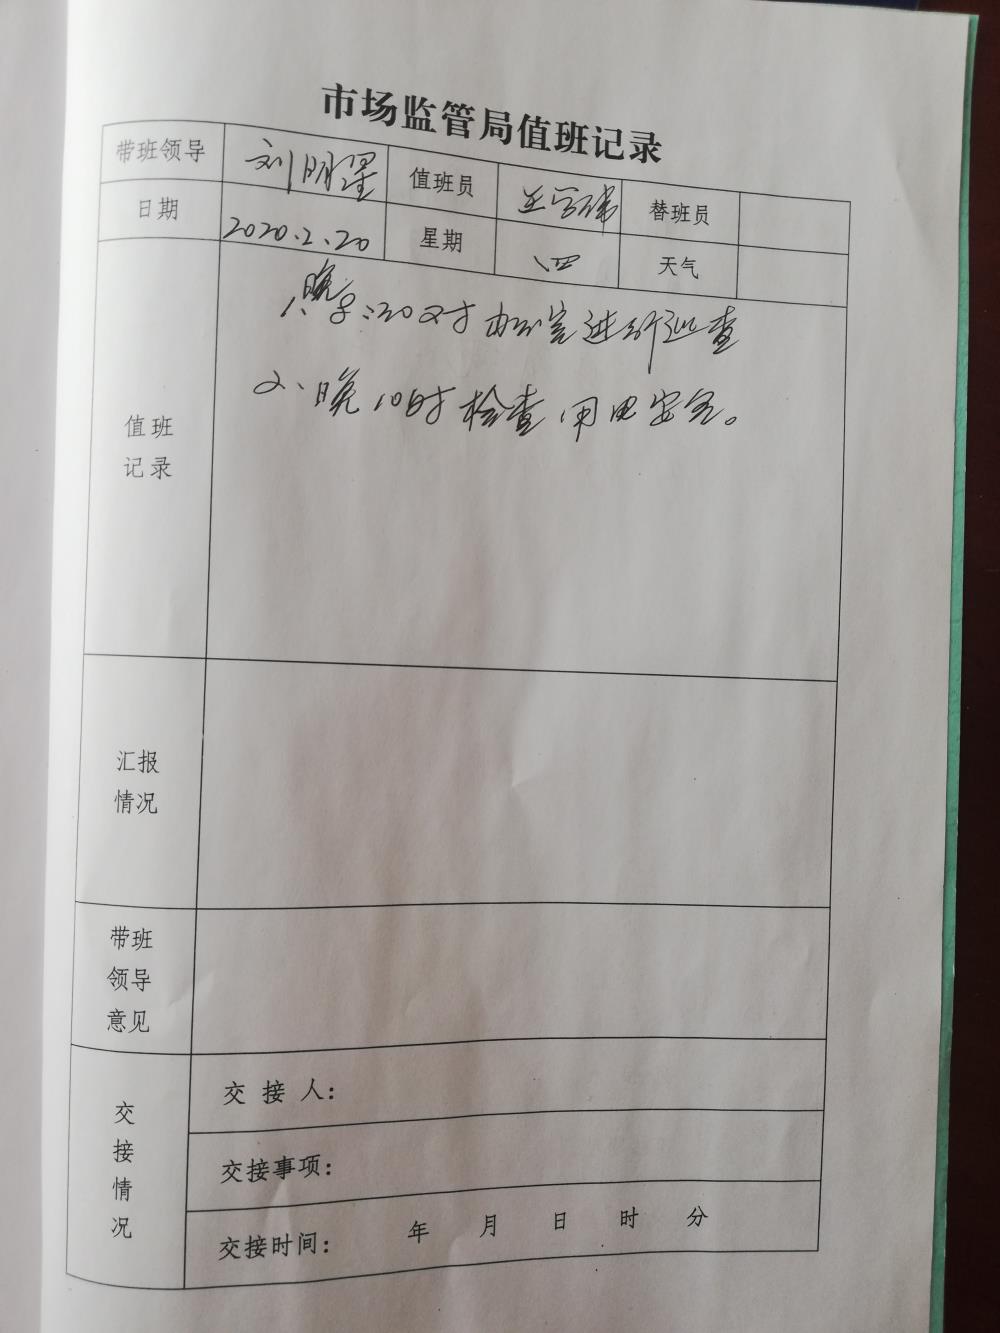 市场监管局值班记录
带班领导 刘明星 值班员 替班员
日期 2020.2.20 星期 四 天气
值班记录
1、晚 :20对办公室进行巡查
2、晚10时检查用电安全。
汇报情况
带班领导意见
交接情况
交接人:
交接事项:
交接时间: 年 月 日 时 分